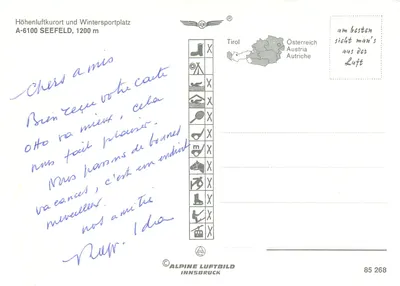 Höhenluftkurort und Wintersportplatz
A-6100 SEEFELD, 1200 m
Tirol
Österreich
Austria
Autriche
am besten
sieht man's
aus der
Luft
Chers amis
Bien reçu votre carte
Otto va mieux, cela
nous fait plaisir.
Nous passons de bonnes
vacances, c'est un endroit
merveilleux.
nos amitiés
Ida
© ALPINE LUFTBILD
INNSBRUCK
85 268